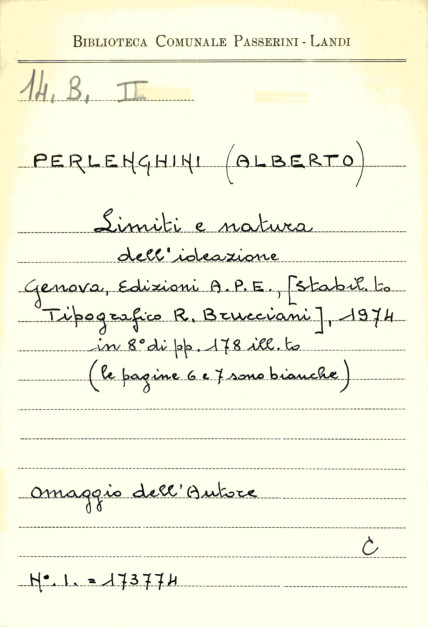 BIBLIOTECA COMUNALE PASSERINI - LANDI
14. B. II
PERLENGHINI (ALBERTO)
Limiti e natura
dell'ideazione
Genova, Edizioni A.P.E., [Stabil.to
Tipografico R. Brucciani], 1974
in 8° di pp. 178 ill.to
(le pagine 6 e 7 sono bianche)
Omaggio dell'Autore
C
N°. I. = 173774